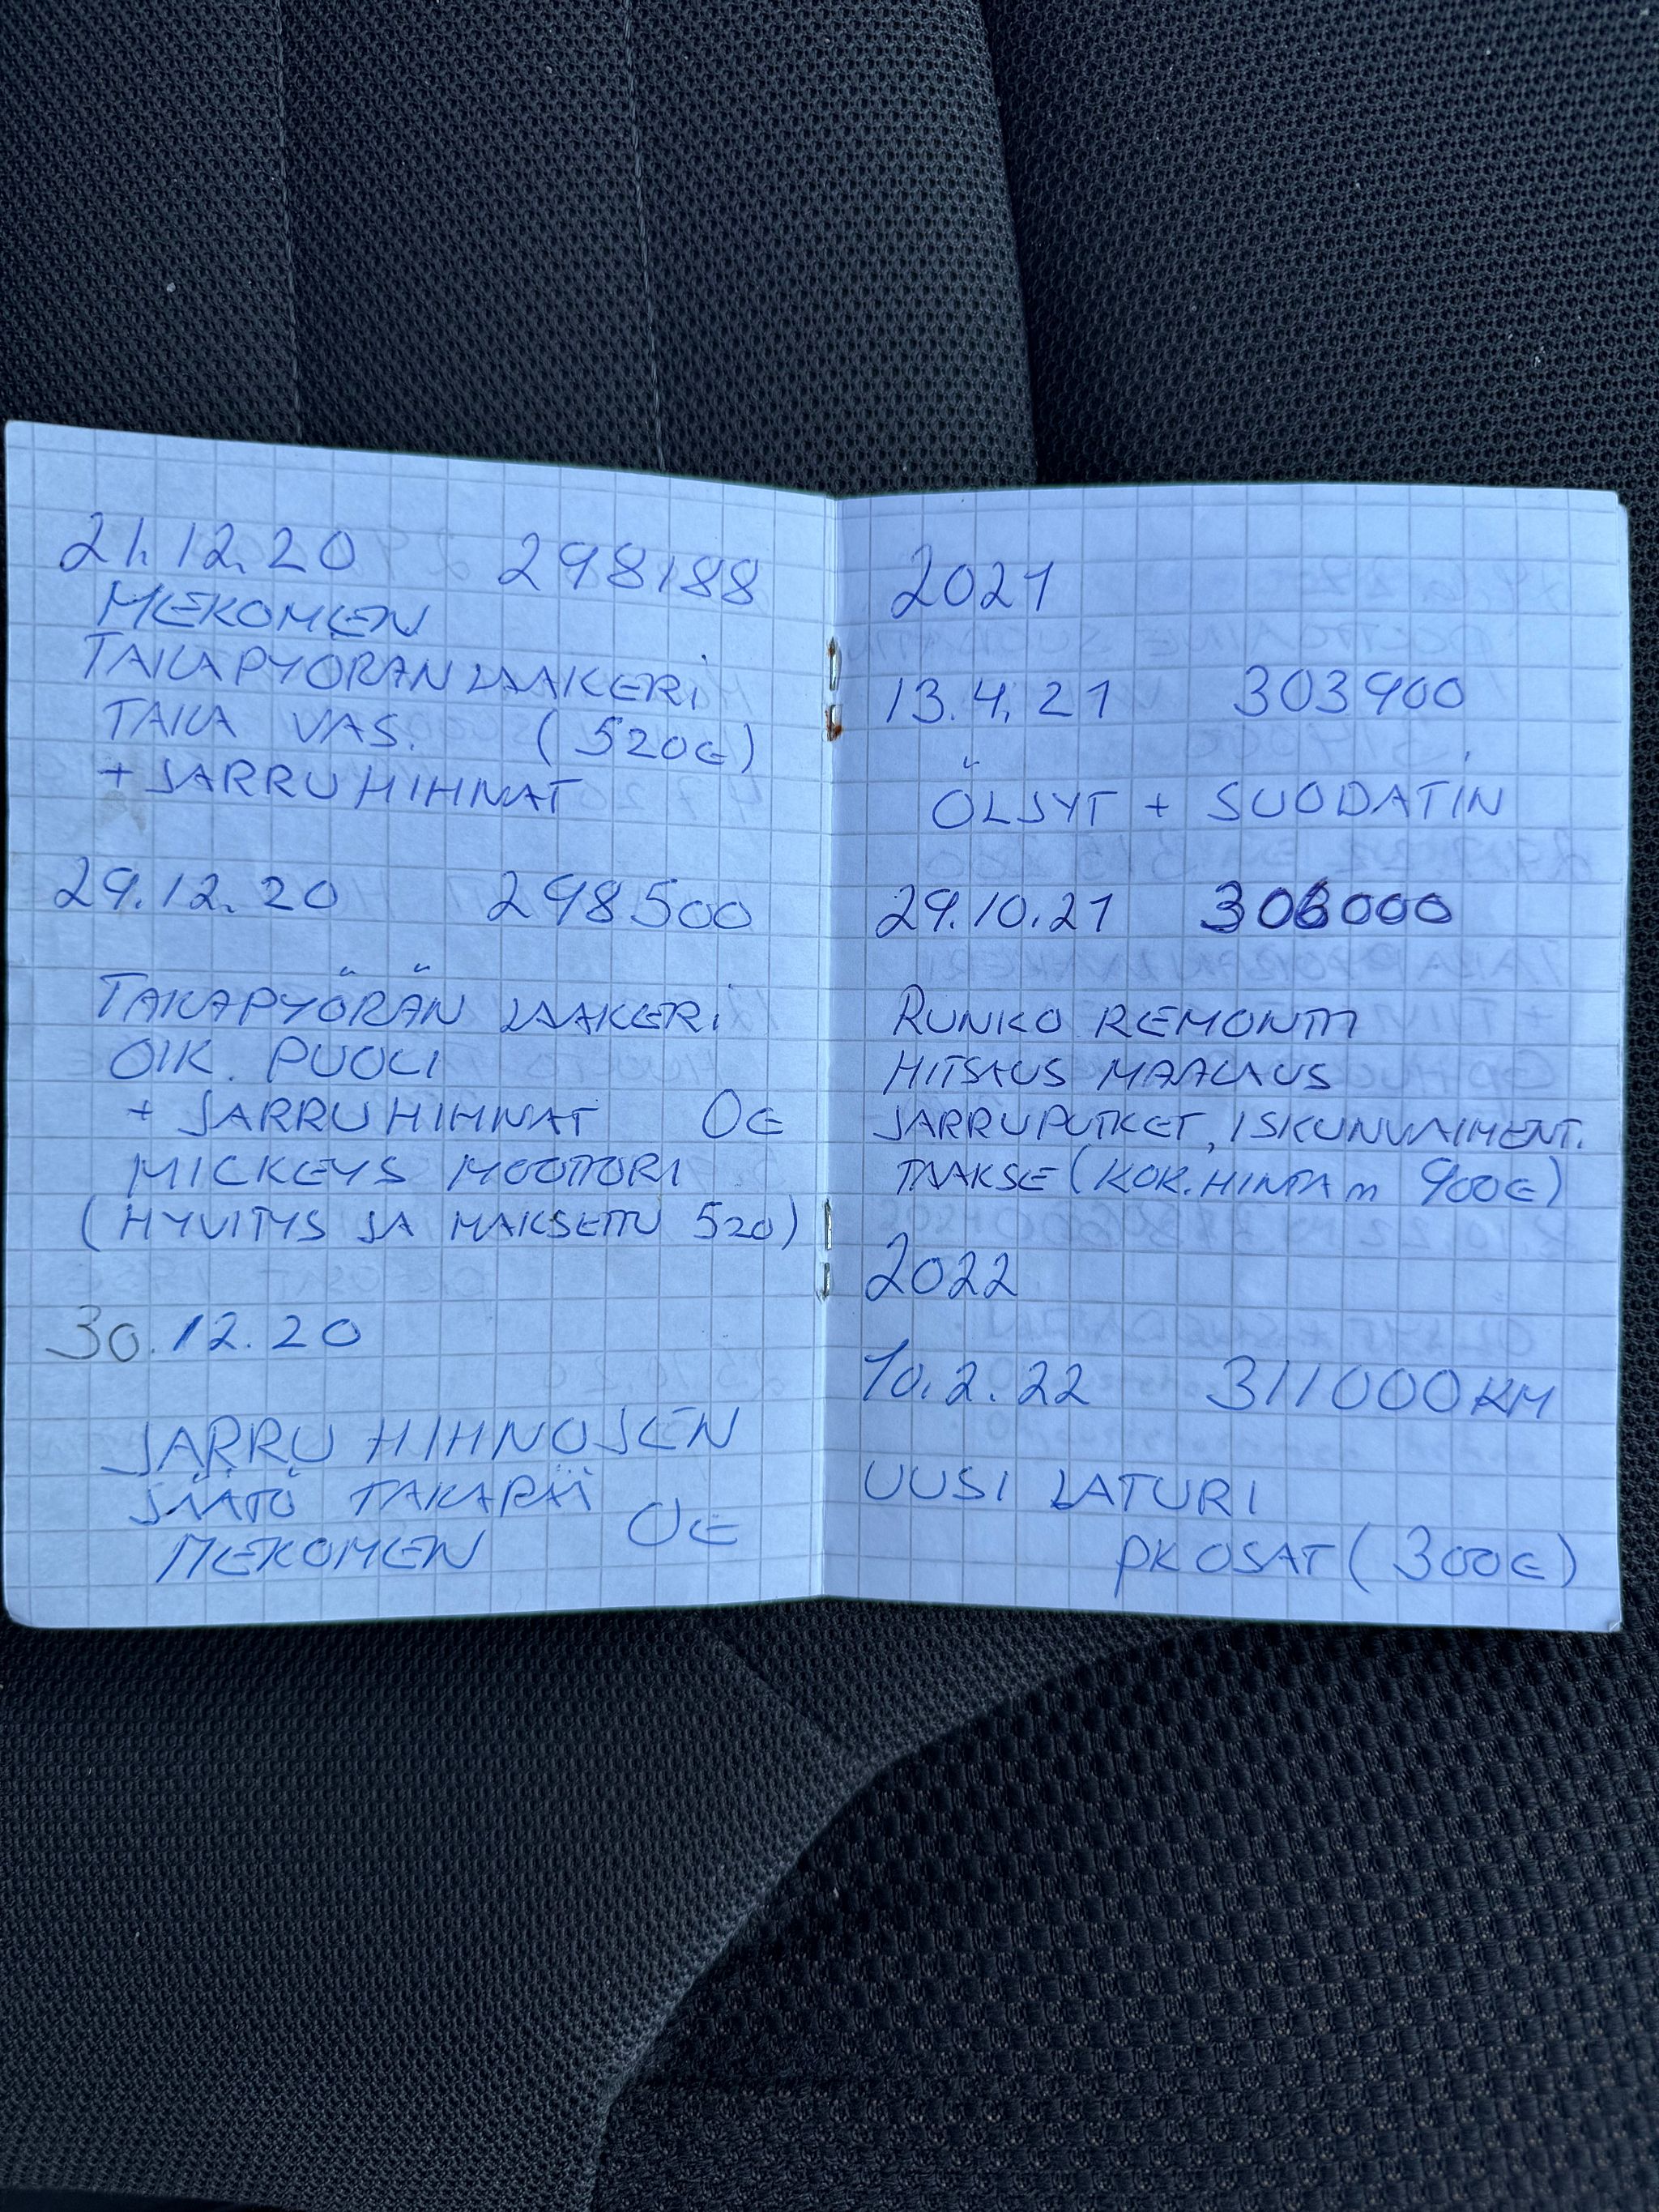 21.12.20 298188
MEKOMEN
TAKAPYORAN LAAKERI
TAKA VAS. (520€)
+ JARRUHIHNAT
29.12.20 298500
TAKAPYÖRÄN LAAKERI
OIK. PUOLI
+ JARRUHIHNAT 0€
MICKEYS MOOTTORI
(HYVITYS JA MAKSETTU 520)
30.12.20
JARRU HIHNOJEN
SÄÄTÖ TAKAPÄÄ
MEKOMEN 0€
2021
13.4.21 303900
ÖLJYT + SUODATIN
29.10.21 306000
RUNKO REMONTTI
HITSAUS MAALAUS
JARRUPUTKET, ISKUNVAIMENT.
TAAKSE (KOK. HINTA n 900€)
2022
10.2.22 311000 KM
UUSI LATURI
PK OSAT (300€)